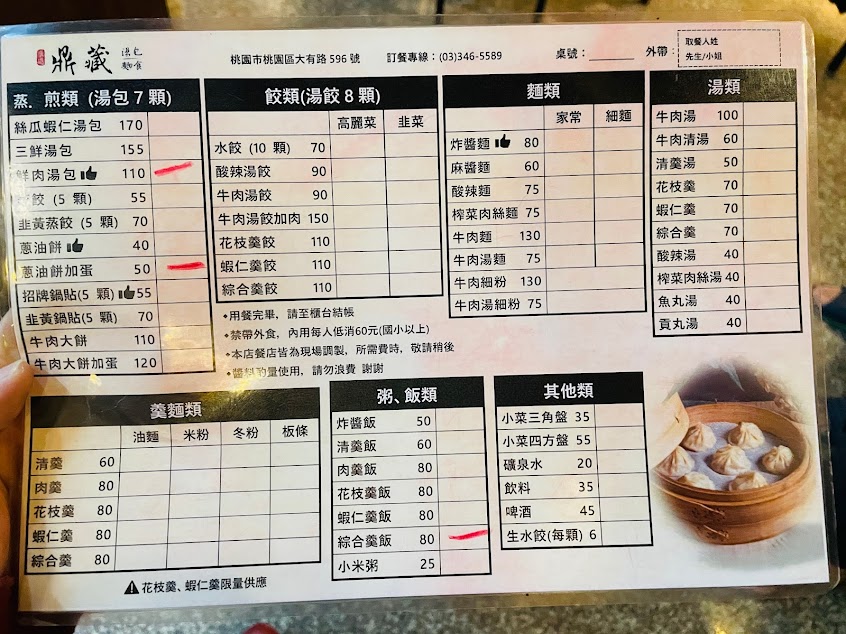 鼎藏 湯包 麵食
桃園市桃園區大有路 596 號 訂餐專線：(03)346-5589 桌號：______ 外帶：
取餐人姓
先生/小姐
蒸．煎類 (湯包 7 顆)
絲瓜蝦仁湯包 170
三鮮湯包 155
鮮肉湯包 110
餃 (5 顆) 55
韭黃蒸餃 (5 顆) 70
蔥油餅 40
蔥油餅加蛋 50
招牌鍋貼(5 顆) 55
韭黃鍋貼(5 顆) 70
牛肉大餅 110
牛肉大餅加蛋 120
餃類(湯餃 8 顆)
高麗菜 韭菜
水餃 (10 顆) 70
酸辣湯餃 90
牛肉湯餃 90
牛肉湯餃加肉 150
花枝羹餃 110
蝦仁羹餃 110
綜合羹餃 110
麵類
家常 細麵
炸醬麵 80
麻醬麵 60
酸辣麵 75
榨菜肉絲麵 75
牛肉麵 130
牛肉湯麵 75
牛肉細粉 130
牛肉湯細粉 75
湯類
牛肉湯 100
牛肉清湯 60
清羹湯 50
花枝羹 70
蝦仁羹 70
綜合羹 70
酸辣湯 40
榨菜肉絲湯 40
魚丸湯 40
貢丸湯 40
◆用餐完畢，請至櫃台結帳
◆禁帶外食，內用每人低消60元(國小以上)
◆本店餐店皆為現場調製，所需費時，敬請稍後
◆醬料酌量使用，請勿浪費 謝謝
羹麵類
油麵 米粉 冬粉 板條
清羹 60
肉羹 80
花枝羹 80
蝦仁羹 80
綜合羹 80
花枝羹、蝦仁羹限量供應
粥、飯類
炸醬飯 50
清羹飯 60
肉羹飯 80
花枝羹飯 80
蝦仁羹飯 80
綜合羹飯 80
小米粥 25
其他類
小菜三角盤 35
小菜四方盤 55
礦泉水 20
飲料 35
啤酒 45
生水餃(每顆) 6